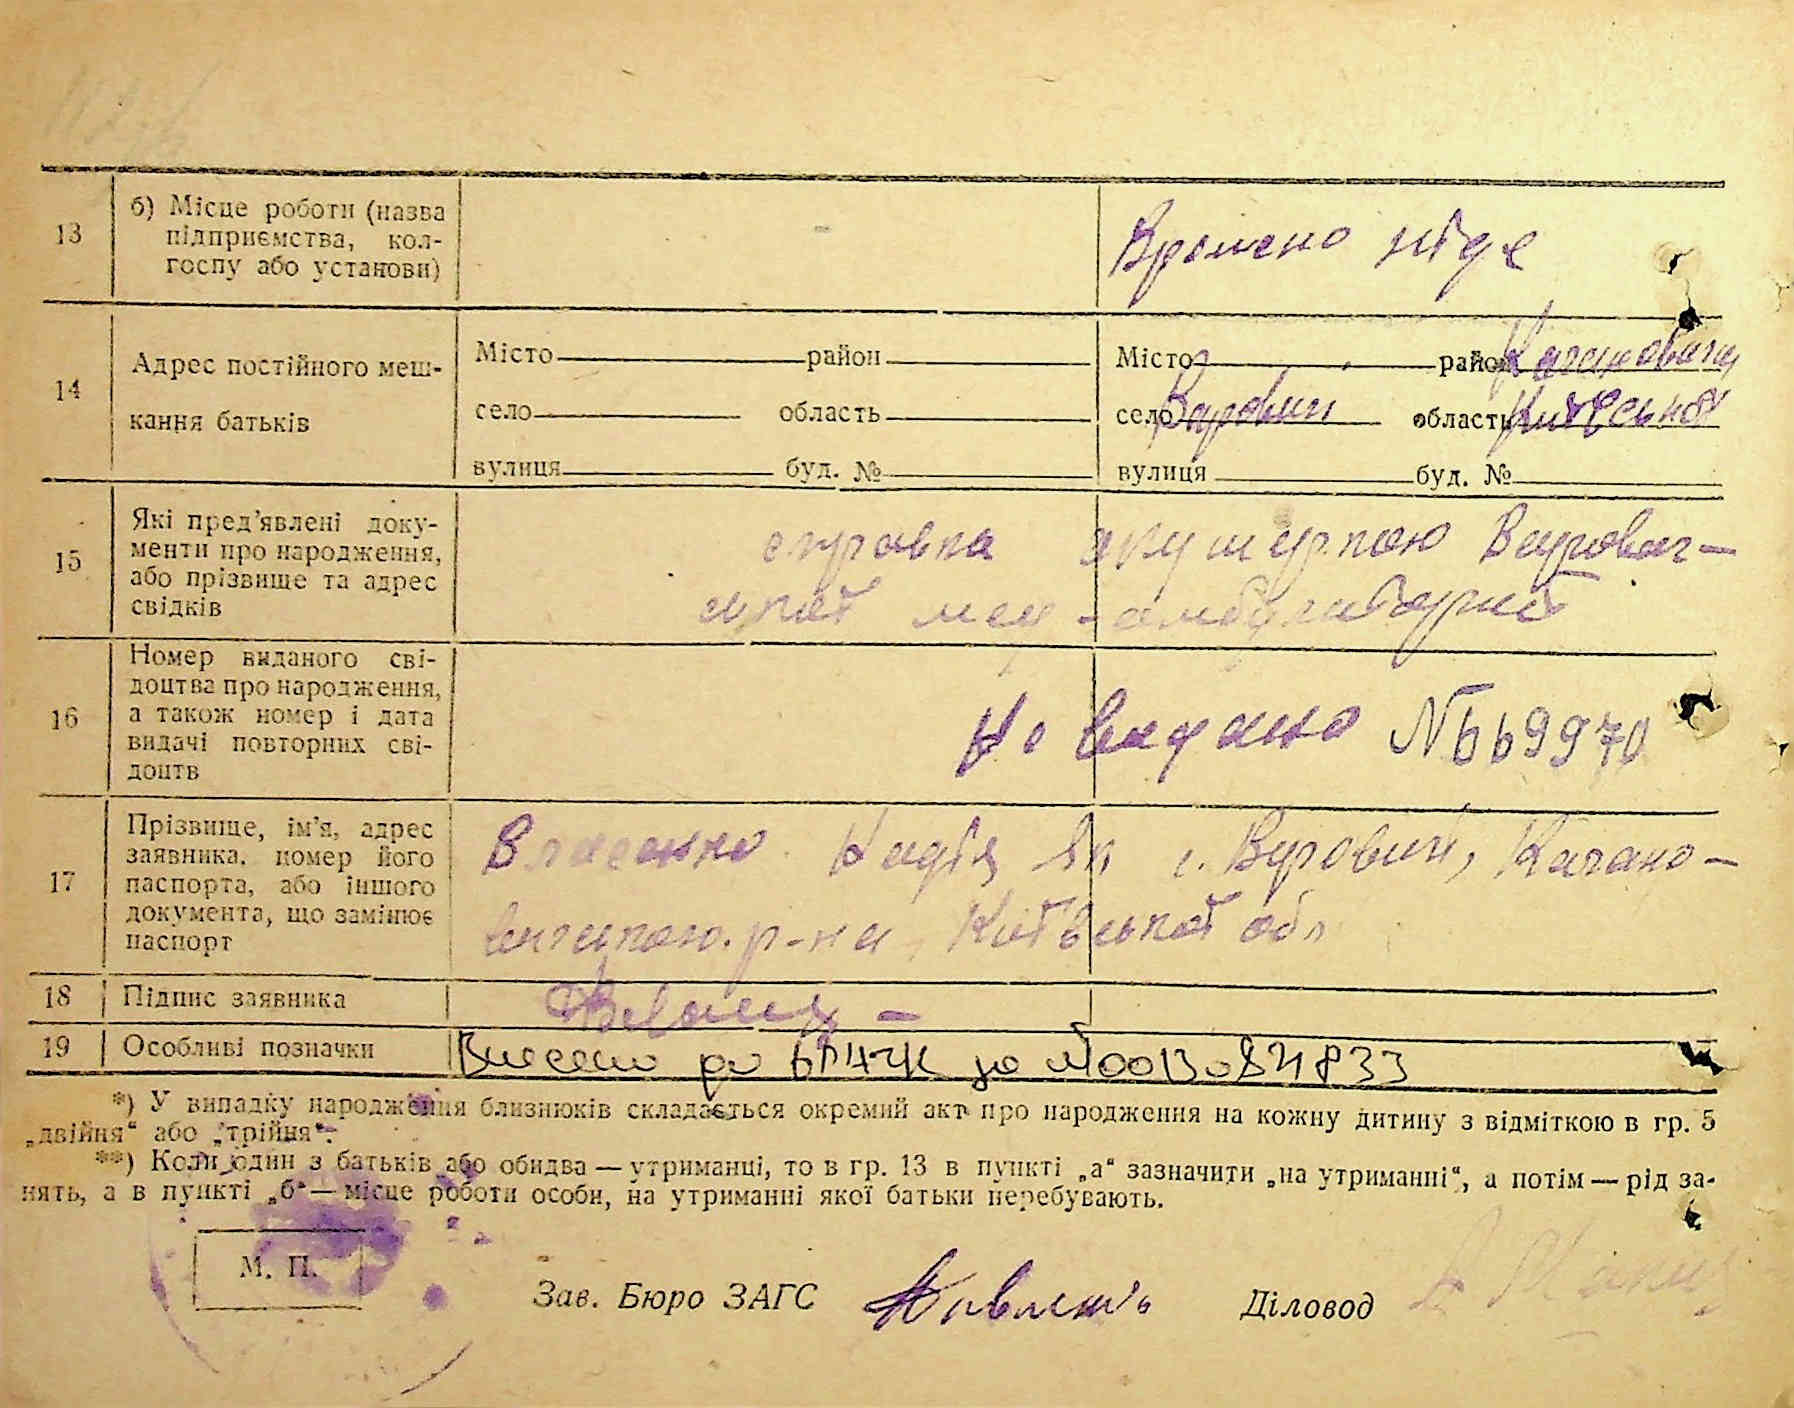 13
б) Місце роботи (назва
підприємства, кол-
госпу або установи)
Времено нiде
14
Адрес постійного меш-
кання батьків
Місто район
село область
вулиця буд. №
Місто район Кагановичи
село Варовичі область Київської
вулиця буд. №
15
Які пред'явлені доку-
менти про народження,
або прізвище та адрес
свідків
справка акушеркою Варович-
ської мед-амбулаторії
16
Номер виданого сві-
доцтва про народження,
а також номер і дата
видачі повторних сві-
доцтв
видано № 669970
17
Прізвище, ім'я, адрес
заявника, номер його
паспорта, або іншого
документа, що замінює
паспорт
Власенко Надія с. Варовичі, Кагано-
вичського р-на, Київської обл
18 Підпис заявника
19 Особливі позначки Внесено до за №00130871833
*) У випадку народження близнюків складається окремий акт про народження на кожну дитину з відміткою в гр. 5
„двійня“ або „трійня“.
**) Коли один з батьків або обидва — утриманці, то в гр. 13 в пункті „а“ зазначити „на утриманні“, а потім — рід за-
нять, а в пункті „б“ — місце роботи особи, на утриманні якої батьки перебувають.
М. П.
Зав. Бюро ЗАГС Діловод